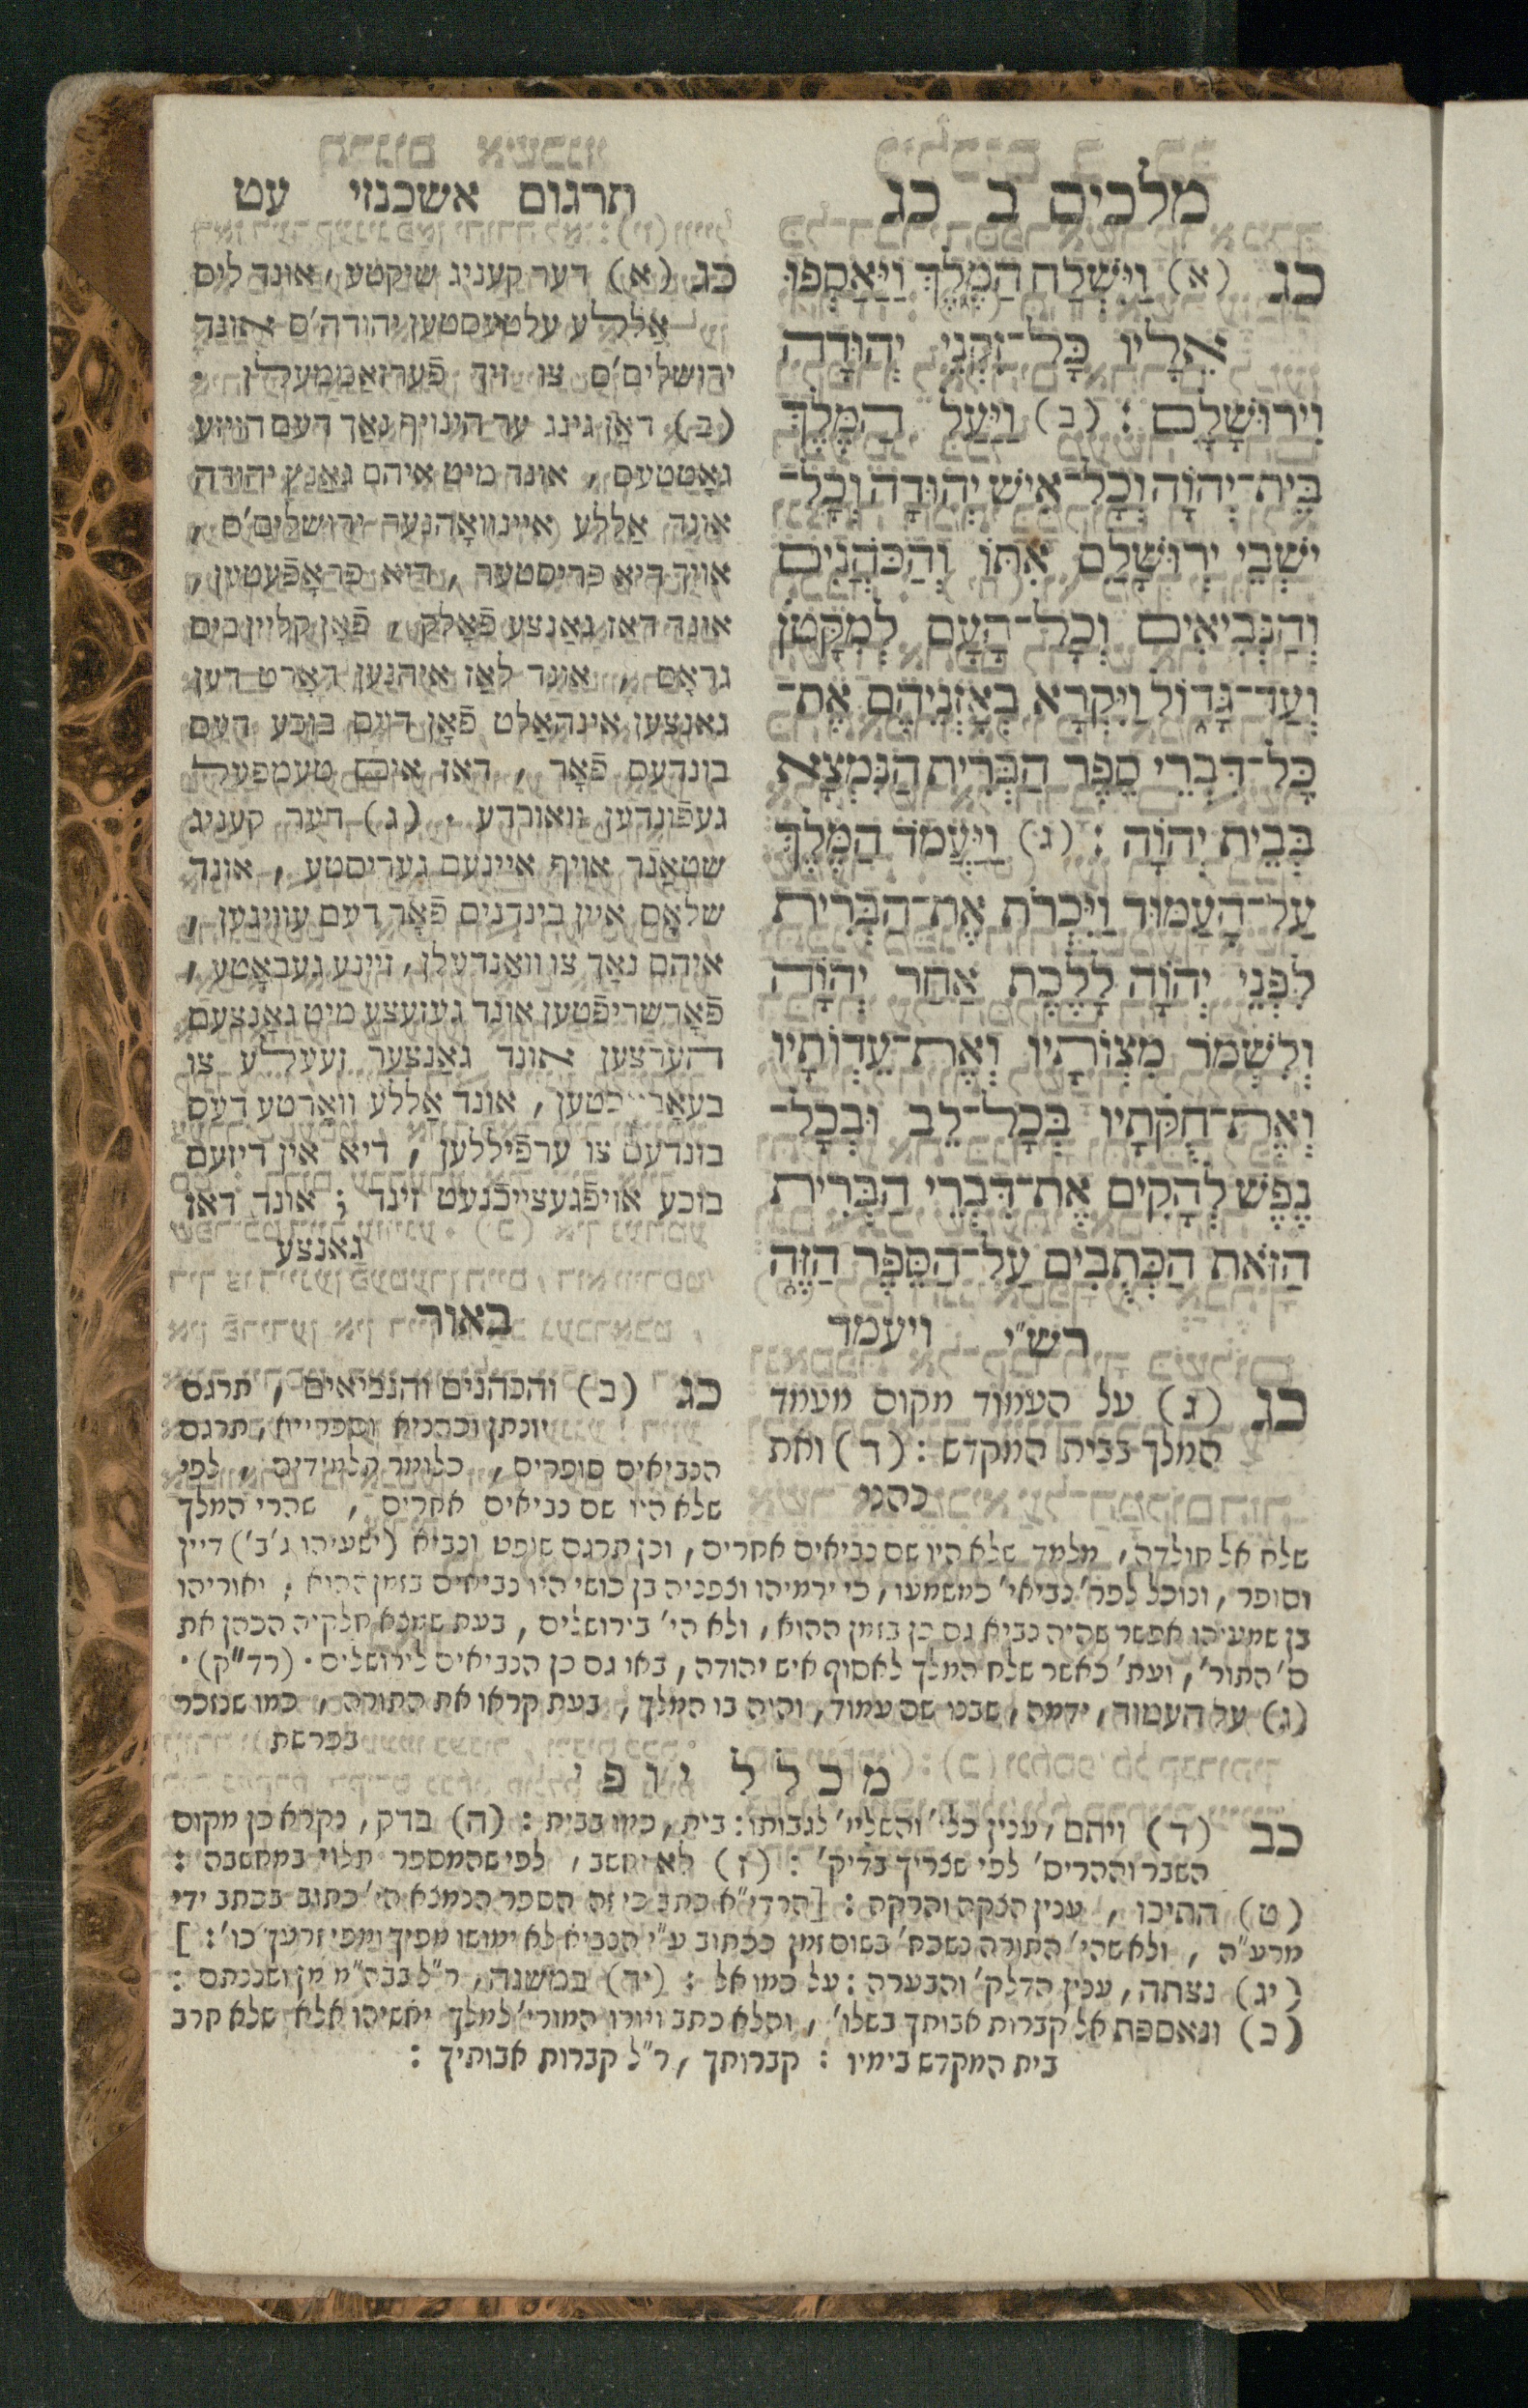 מלכים ב כג
כג (א) וַיִּשְׁלַח הַמֶּלֶךְ וַיַּאַסְפוּ
אֵלָיו כָּל־זִקְנֵי יְהוּדָה
וִירוּשָׁלָ‍ִם : (ב) וַיַּעַל הַמֶּלֶךְ
בֵּית־יְהוָֹה וְכָל־אִישׁ יְהוּדָה וְכָל־
יֹשְׁבֵי יְרוּשָׁלִַם אִתּוֹ וְהַכֹּהֲנִים
וְהַנְּבִיאִים וְכָל־הָעָם לְמִקָּטֹן
וְעַד־גָּדוֹל וַיִּקְרָא בְאָזְנֵיהֶם אֶת־
כָּל־דִּבְרֵי סֵפֶר הַבְּרִית הַנִּמְצָא
בְּבֵית יְהוָֹה : (ג) וַיַּעֲמֹד הַמֶּלֶךְ
עַל־הָעַמּוּד וַיִּכְרֹת אֶת־הַבְּרִית
לִפְנֵי יְהוָֹה לָלֶכֶת אַחַר יְהוָֹה
וְלִשְׁמֹר מִצְוֹתָיו וְאֶת־עֵדְוֹתָיו
וְאֶת־חֻקֹּתָיו בְּכָל־לֵב וּבְכָל־
נֶפֶשׁ לְהָקִים אֶת־דִּבְרֵי הַבְּרִית
הַזֹּאת הַכְּתֻבִים עַל־הַסֵּפֶר הַזֶּה
ויעמד
תרגום אשכנזי עט
כג (א) דער קעניג שיקטע, אונד ליס
אַללע עלטעסטען יהודה'ס אונד
ירושלים'ס צו זיך פֿערזאַממעלן .
(ב) דאַן גינג ער הינויף נאַך דעם הויזע
גאָטטעס, אונד מיט איהם גאַנץ יהודה
אונד אַללע איינוואָהנער ירושלים'ס,
אויך דיא פריסטער, דיא פראָפֿעטען,
אונד דאז גאַנצע פֿאָלק, פֿאָן קליין ביס
גראָס, אונד לאַז איהנען דאָרט דען
גאנצען אינהאַלט פֿאָן דעם בוכע דעס
בונדעס פֿאָר, דאז אים טעמפעל
געפֿונדען וואורדע. (ג) דער קעניג
שטאַנד אויף איינעם געריסטע, אונד
שלאָס איין בינדניס פֿאָר דעם עוויגען,
איהם נאָך צו וואַנדעלן, זיינע געבאָטע,
פֿאָרשריפֿטען אונד געזעצע מיט גאַנצעם
הערצען אונד גאַנצער זעעלע צו
אונד אַללע וואָרטע דעס
בונדעס צו ערפֿיללען, דיא אין דיזעם
בוכע אויפֿגעצייכֿנעט זינד ; אונד דאז
גאַנצע
רש"י
כג (ג) על העמוד מקום מעמד
המלך בבית המקדש : (ד) ואת
כהני
באור
כג (ב) והכהנים והנביאים, תרגם
יונתן וכהניא וספרייא, תרגם
הנביאים סופרים, כלומר תלמידים, לפי
שלא היו שם נביאים אחרים, שהרי המלך
שלח אל חולדה, מלמד שלא היו שם נביאים אחרים, וכן תרגם שופט ונביא (ישעיהו ג'ב') דיין
וסופר, ונוכל לפר' נביאי' כמשמעו, כי ירמיהו וצפניה בן כושי היו נביאים בזמן ההוא, ואוריהו
בן שמעיהו אפשר שהיה נביא גם כן בזמן ההוא, ולא הי' בירושלים, בעת שמצא חלקיה הכהן את
ס' התור', ועת' כאשר שלח המלך לאסוף איש יהודה, באו גם כן הנביאים לירושלים. (רד"ק).
(ג) על העמוד, ידמה, שבנו שם עמוד, והיה בו המלך, בעת קראו את התורה, כמו שנזכר
בפרשת
מכלל יופי
כב (ד) ויתם, ענין כלי' והשלימ' לגבותו: בית, כמו בבית : (ה) בדק, נקרא כן מקום
השבר וההריס' לפי שצריך בדיק' : (ז) לא יחשב, לפי שהמספר תלוי במחשבה :
(ט) התיכו, ענין הצקה והרקה : [הרדי"א כתב כי זה הספר הנמצא הי' כתוב בכתב ידי
מרע"ה, ולא שהי' התורה נשכח' בשום זמן ככתוב ע"י הנביא לא ימושו מפיך ומפי זרעך כו' : ]
(יג) נצתה, ענין הדלק' והבערה : על כמו אל : (יד) במשנה, ר"ל בבה"מ מן ושננתם :
(כ) ונאספת אל קברות אבותך בשלו', והלא כתב ויורו המורי' למלך יאשיהו אלא שלא חרב
בית המקדש בימיו : קברותך, ר"ל קברות אבותיך :